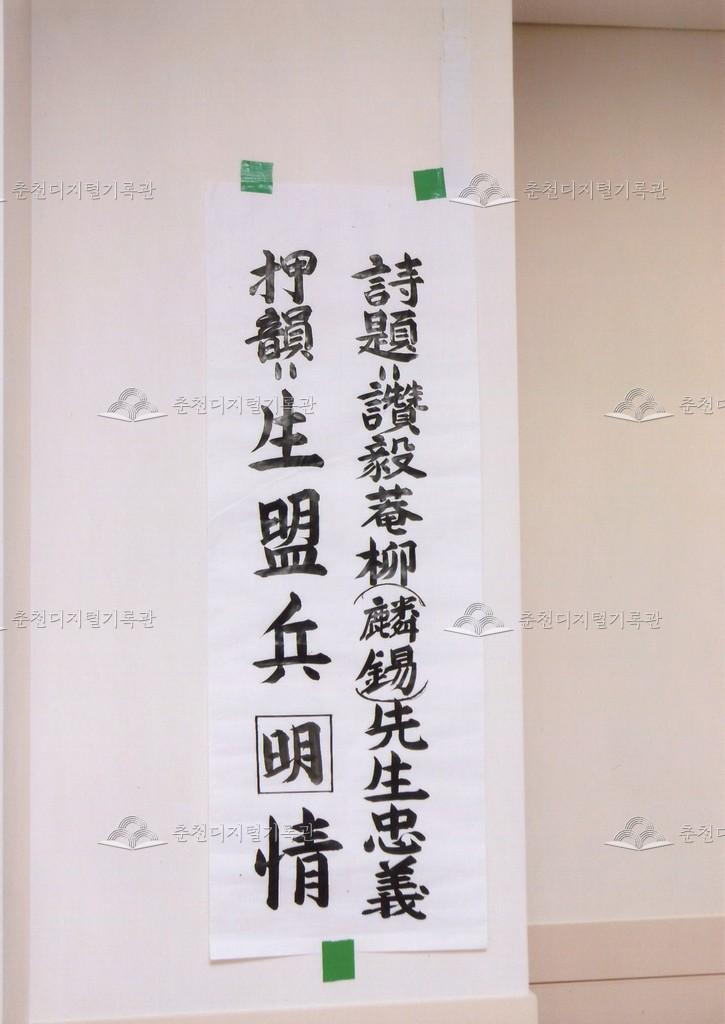 詩題=讚毅菴柳(麟錫)先生忠義
押韻=生盟兵明情
춘천디지털기록관
춘천디지털기록관
춘천디지털기록관
춘천디
춘천디지털기록관
춘천디지털기록관
춘천디지털기록관
춘천디